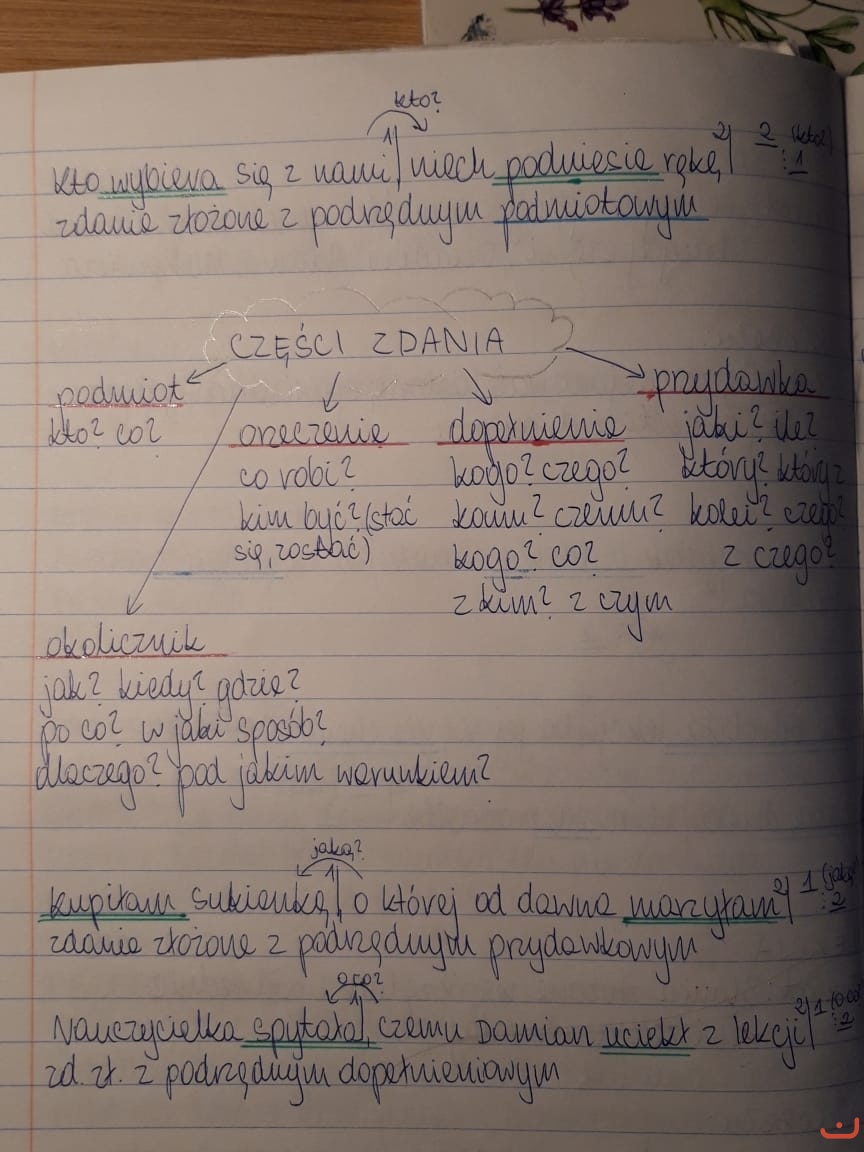 kto?
1| 2| 2 (kto?)
Kto wybiera się z nami, niech podniesie rękę : 1
zdanie złożone z podrzędnym podmiotowym
CZĘŚCI ZDANIA
podmiot
kto? co?
orzeczenie
co robi?
kim być? (stać
się, zostać)
dopełnienie
kogo? czego?
komu? czemu?
kogo? co?
z kim? z czym
przydawka
jaki? ile?
który? który z
kolei? czego?
z czego?
okolicznik
jak? kiedy? gdzie?
po co? w jaki sposób?
dlaczego? pod jakim warunkiem?
jaką?
1| 2| 1 (jaką
Kupiłam sukienkę, o której od dawna marzyłam : 2
zdanie złożone z podrzędnym przydawkowym
o co?
1| 2| 1 (o co
Nauczycielka spytała, czemu Damian uciekł z lekcji : 2
zd. zł. z podrzędnym dopełnieniowym